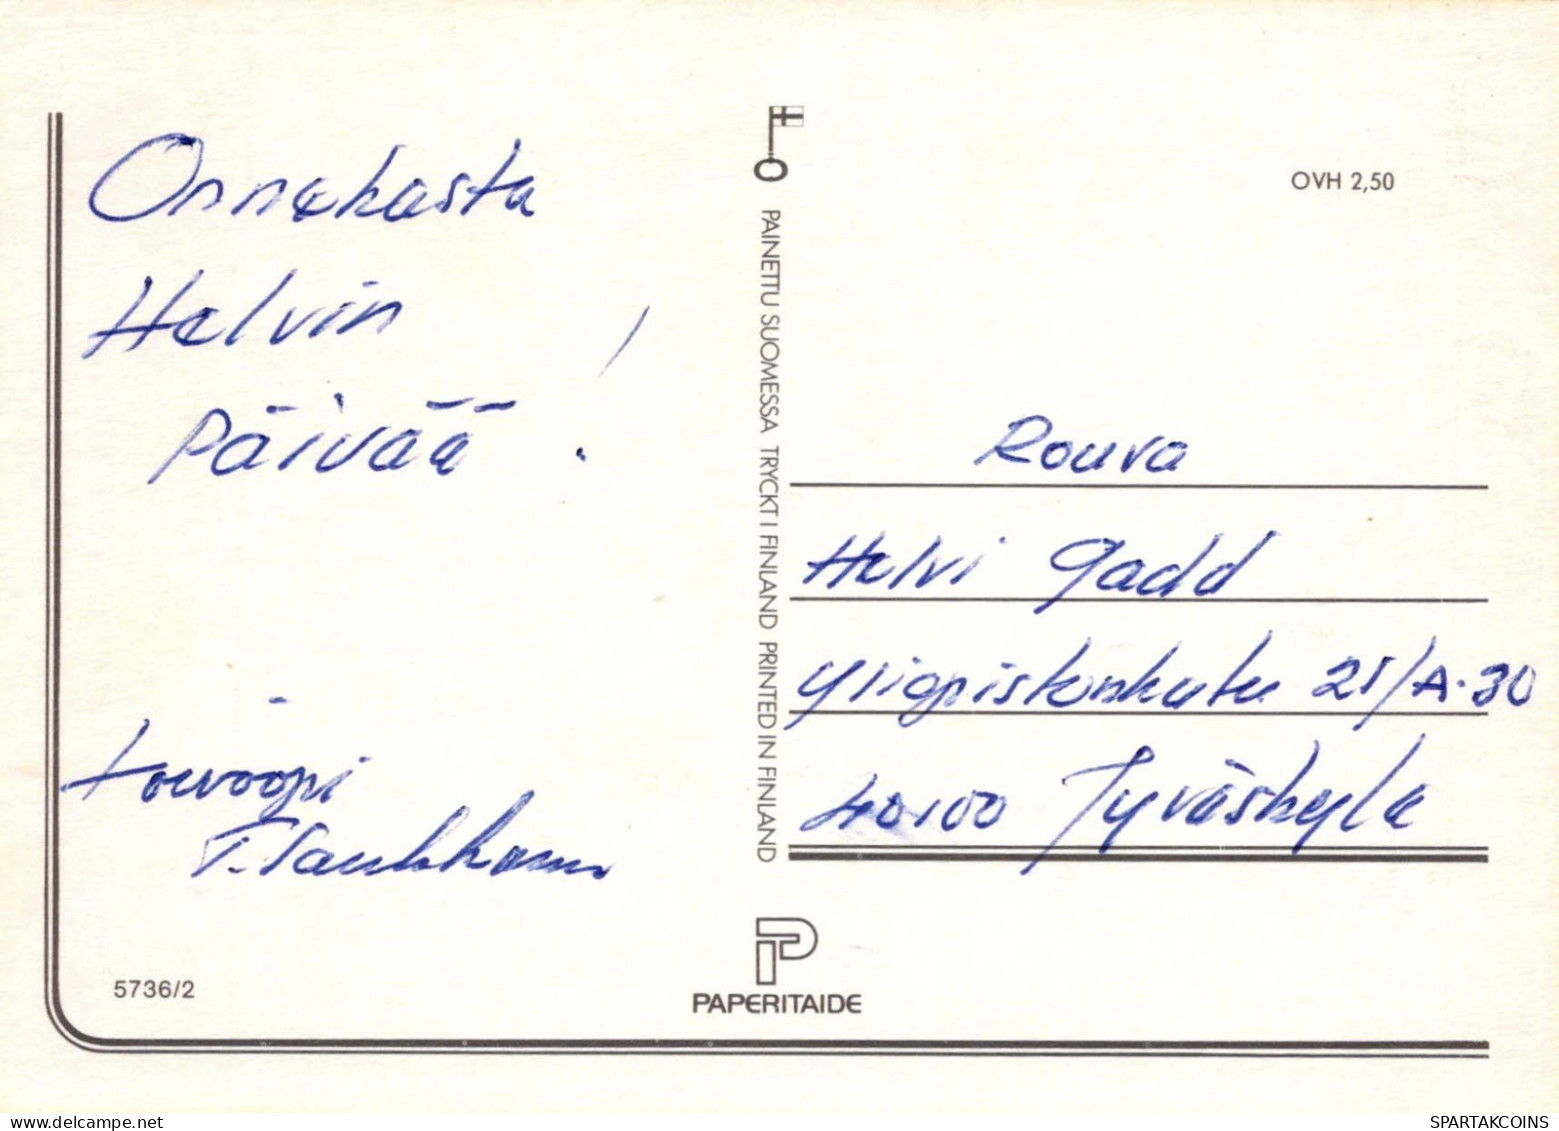 Onnekasta
Helvin
Päivää !
toivoopi
T.
5736/2
PAINETTU SUOMESSA TRYCKT I FINLAND PRINTED IN FINLAND
PAPERITAIDE
OVH 2,50
Rouva
Helvi Gadd
Yliopistonkatu 25/A.30
40100 Jyväskyla
delcampe.net
SPARTAKCOINS